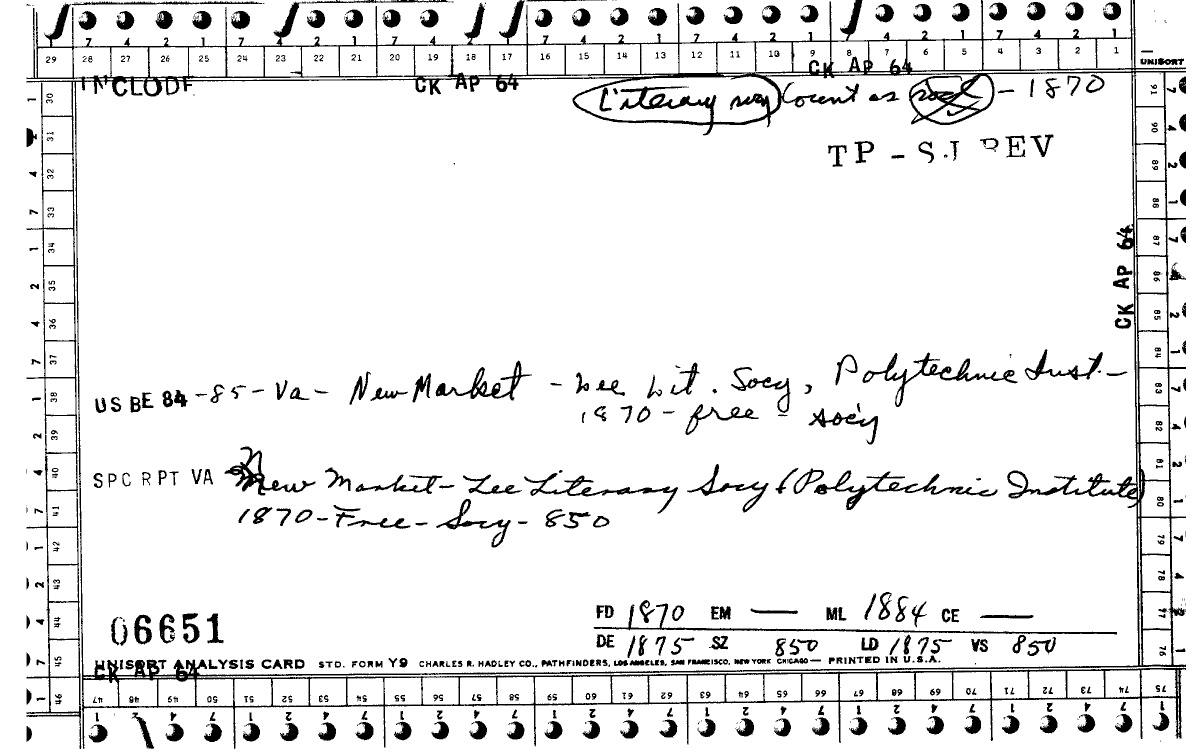 7 4 2 1 7 4 2 1 7 4 2 1 7 4 2 1 7 4 2 1 7 4 2 1
29 28 27 26 25 24 23 22 21 20 19 18 17 16 15 14 13 12 11 10 9 8 7 6 5 4 3 2 1
UNISORT
INCLODE CK AP 64 CK AP 64
Literary socy Count as - 1870
TP - SJ REV
CK AP 64
US BE 84-85-Va- New Market - Lee Lit. Socy, Polytechnic Inst.-
1870-free - socy
SPC RPT VA New Market-Lee Literary Socy (Polytechnic Institute)
1870-Free-Socy-850
06651
FD 1870 EM — ML 1884 CE —
DE 1875 SZ 850 LD 1875 VS 850
UNISORT ANALYSIS CARD STD. FORM Y9 CHARLES R. HADLEY CO., PATHFINDERS, LOS ANGELES, SAN FRANCISCO, NEW YORK CHICAGO — PRINTED IN U.S.A.
CK AP 64
30 31 32 33 34 35 36 37 38 39 40 41 42 43 44 45 46
47 48 49 50 51 52 53 54 55 56 57 58 59 60 61 62 63 64 65 66 67 68 69 70 71 72 73 74 75
76 77 78 79 80 81 82 83 84 85 86 87 88 89 90 91